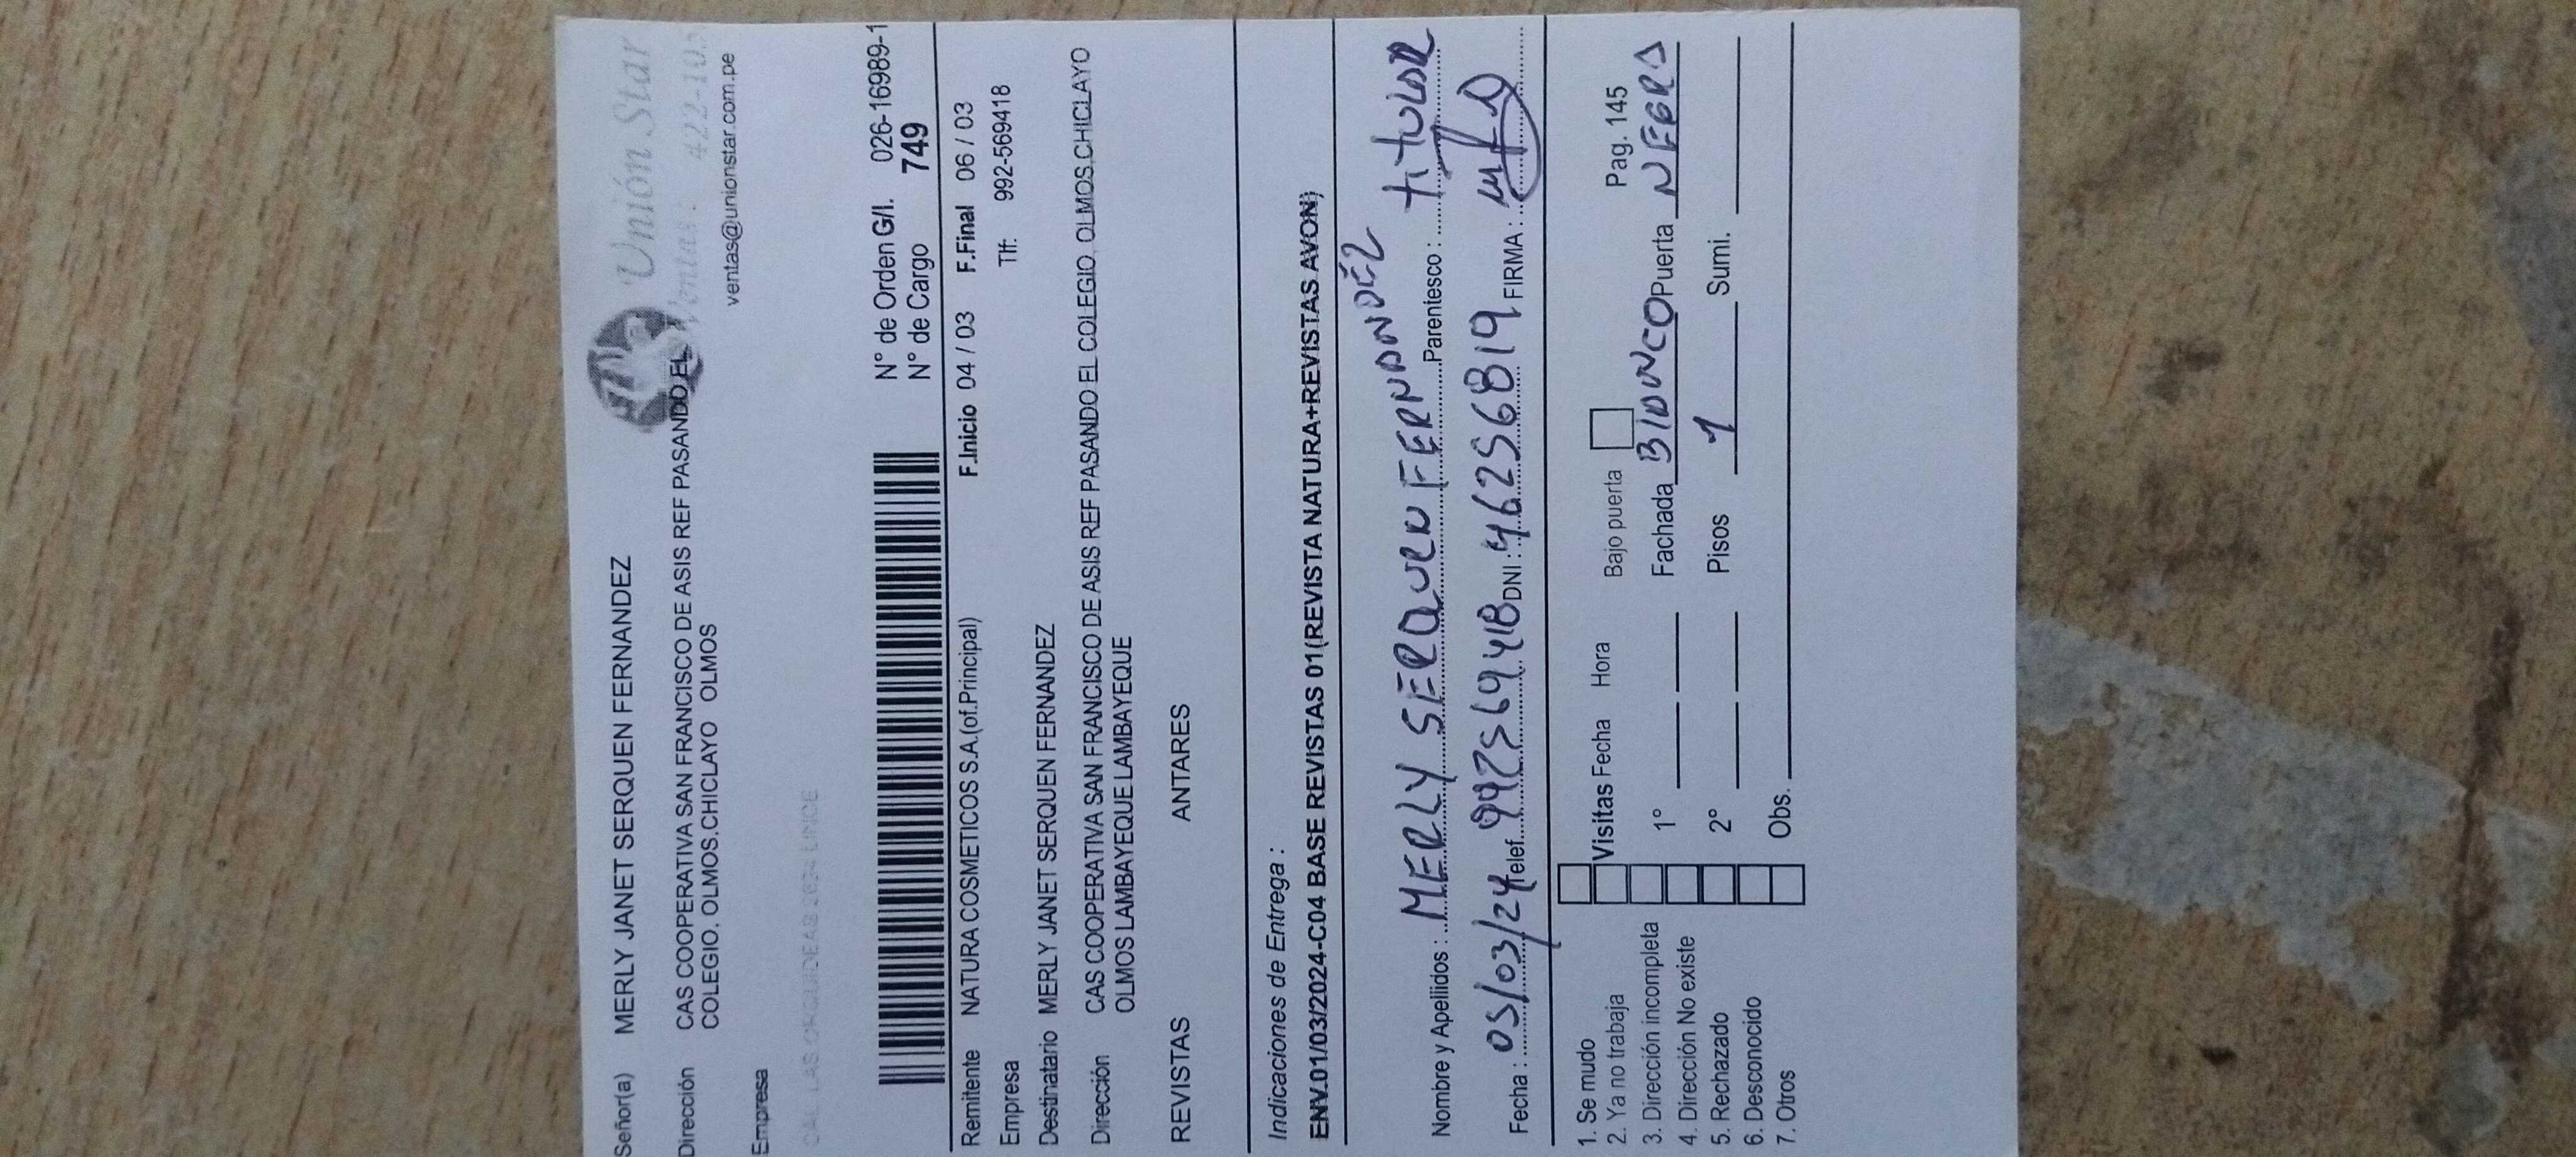 Unión Star
Ventas: 422-10
ventas@unionstar.com.pe
Señor(a) MERLY JANET SERQUEN FERNANDEZ
Dirección CAS COOPERATIVA SAN FRANCISCO DE ASIS REF PASANDO EL
COLEGIO. OLMOS.CHICLAYO OLMOS
Empresa
CAL. LAS ORQUIDEAS 2624 LINCE
N° de Orden G/I. 026-16989-1
N° de Cargo 749
F.Inicio 04 / 03 F.Final 06 / 03
Remitente NATURA COSMETICOS S.A.(of.Principal)
Empresa Tlf: 992-569418
Destinatario MERLY JANET SERQUEN FERNANDEZ
Dirección CAS COOPERATIVA SAN FRANCISCO DE ASIS REF PASANDO EL COLEGIO, OLMOS,CHICLAYO
OLMOS LAMBAYEQUE LAMBAYEQUE
REVISTAS ANTARES
Indicaciones de Entrega :
ENV.01/03/2024-C04 BASE REVISTAS 01(REVISTA NATURA+REVISTAS AVON)
Nombre y Apellidos : MERLY SERQUEN FERNANDEZ Parentesco : titular
Fecha : 05/03/24 Telef. 992569418 DNI : 46256819 FIRMA :
1. Se mudo
2. Ya no trabaja
3. Dirección incompleta
4. Dirección No existe
5. Rechazado
6. Desconocido
7. Otros
Visitas Fecha Hora Bajo puerta Pag. 145
1° Fachada BlANCO Puerta NEGRA
2° Pisos 1 Sumi.
Obs.